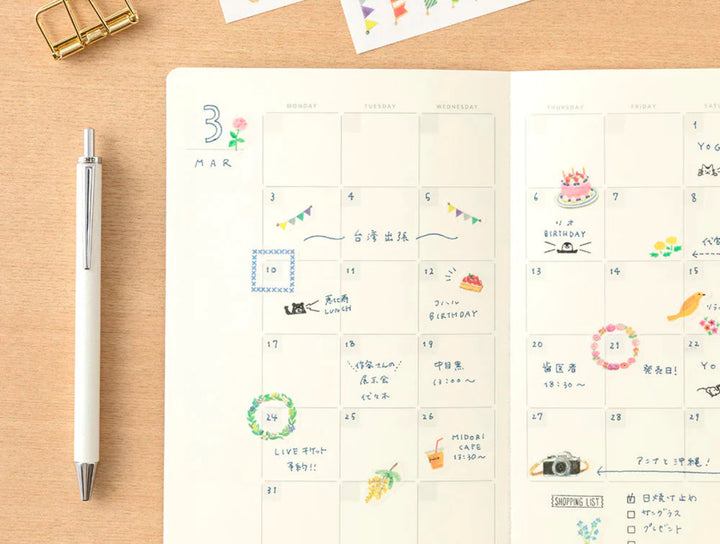 MONDAY TUESDAY WEDNESDAY THURSDAY FRIDAY
3
MAR
1
YOG
3 4 5 6 7 8
台湾出張
BIRTHDAY
10 11 12 13 14 15
恵比寿
LUNCH
コハル
BIRTHDAY
17 18 19 20 21 22
作家さんの
展示会
代々木
中目黒
13:00〜
歯医者
18:30〜
発売日!
YO
24 25 26 27 28 29
LIVE チケット
予約!!
MIDORI
CAFE
13:30〜
アンナと沖縄!
31
SHOPPING LIST
日焼け止め
サングラス
プレゼント